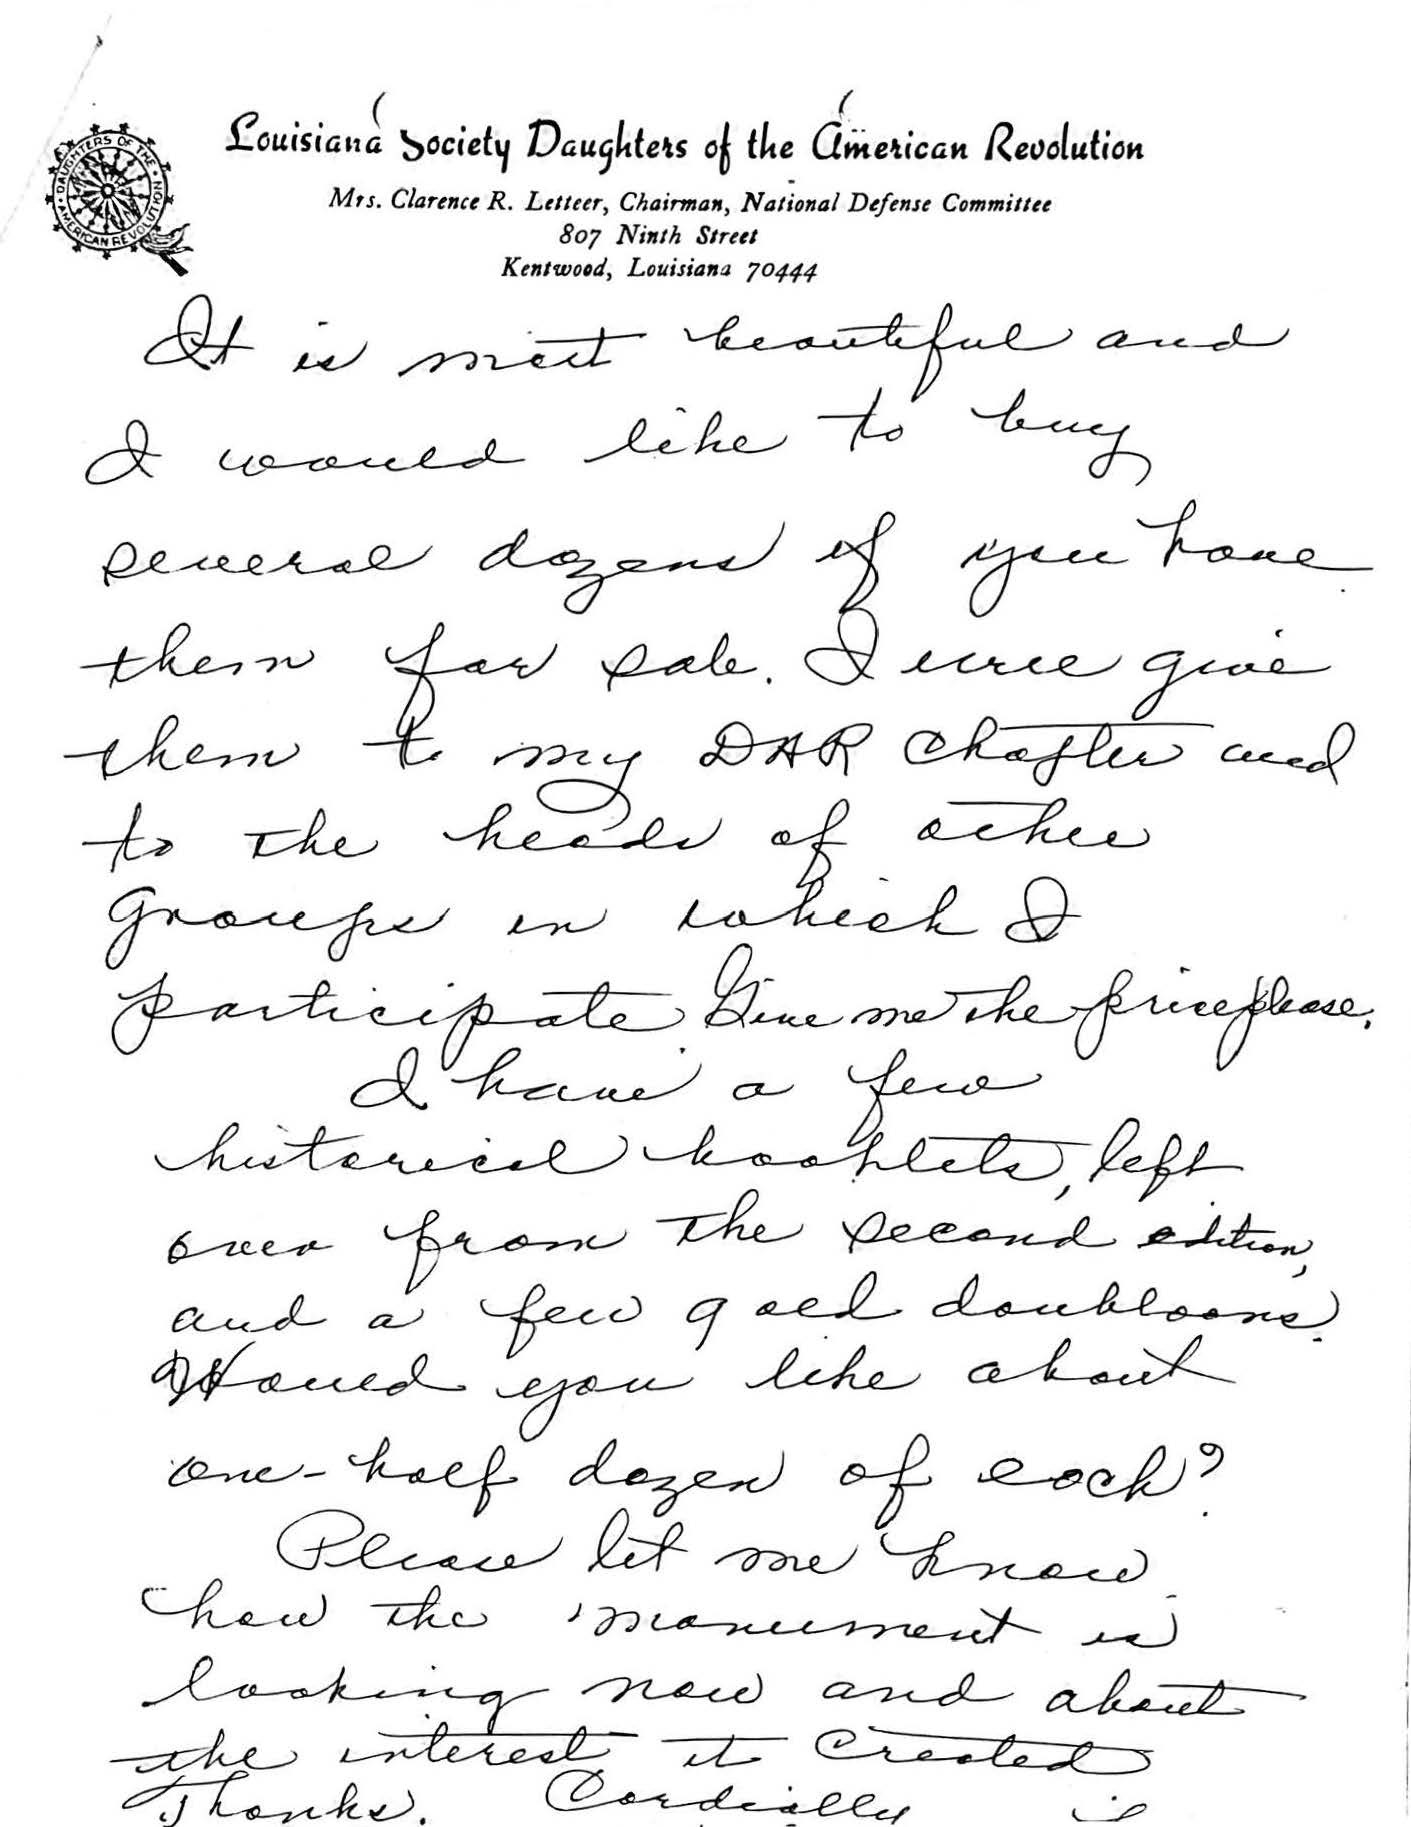 DAUGHTERS OF THE AMERICAN REVOLUTION
Louisiana Society Daughters of the American Revolution
Mrs. Clarence R. Letteer, Chairman, National Defense Committee
807 Ninth Street
Kentwood, Louisiana 70444
It is most beautiful and
I would like to buy
several dozens if you have
them for sale. I will give
them to my DAR Chapter and
to the heads of other
groups in which I
participate. Give me the price please.
I have a few
historical booklets, left
over from the second edition,
and a few gold doubloons.
Would you like about
one-half dozen of each?
Please let me know
how the monument is
looking now and about
the interest it created
Thanks. Cordially